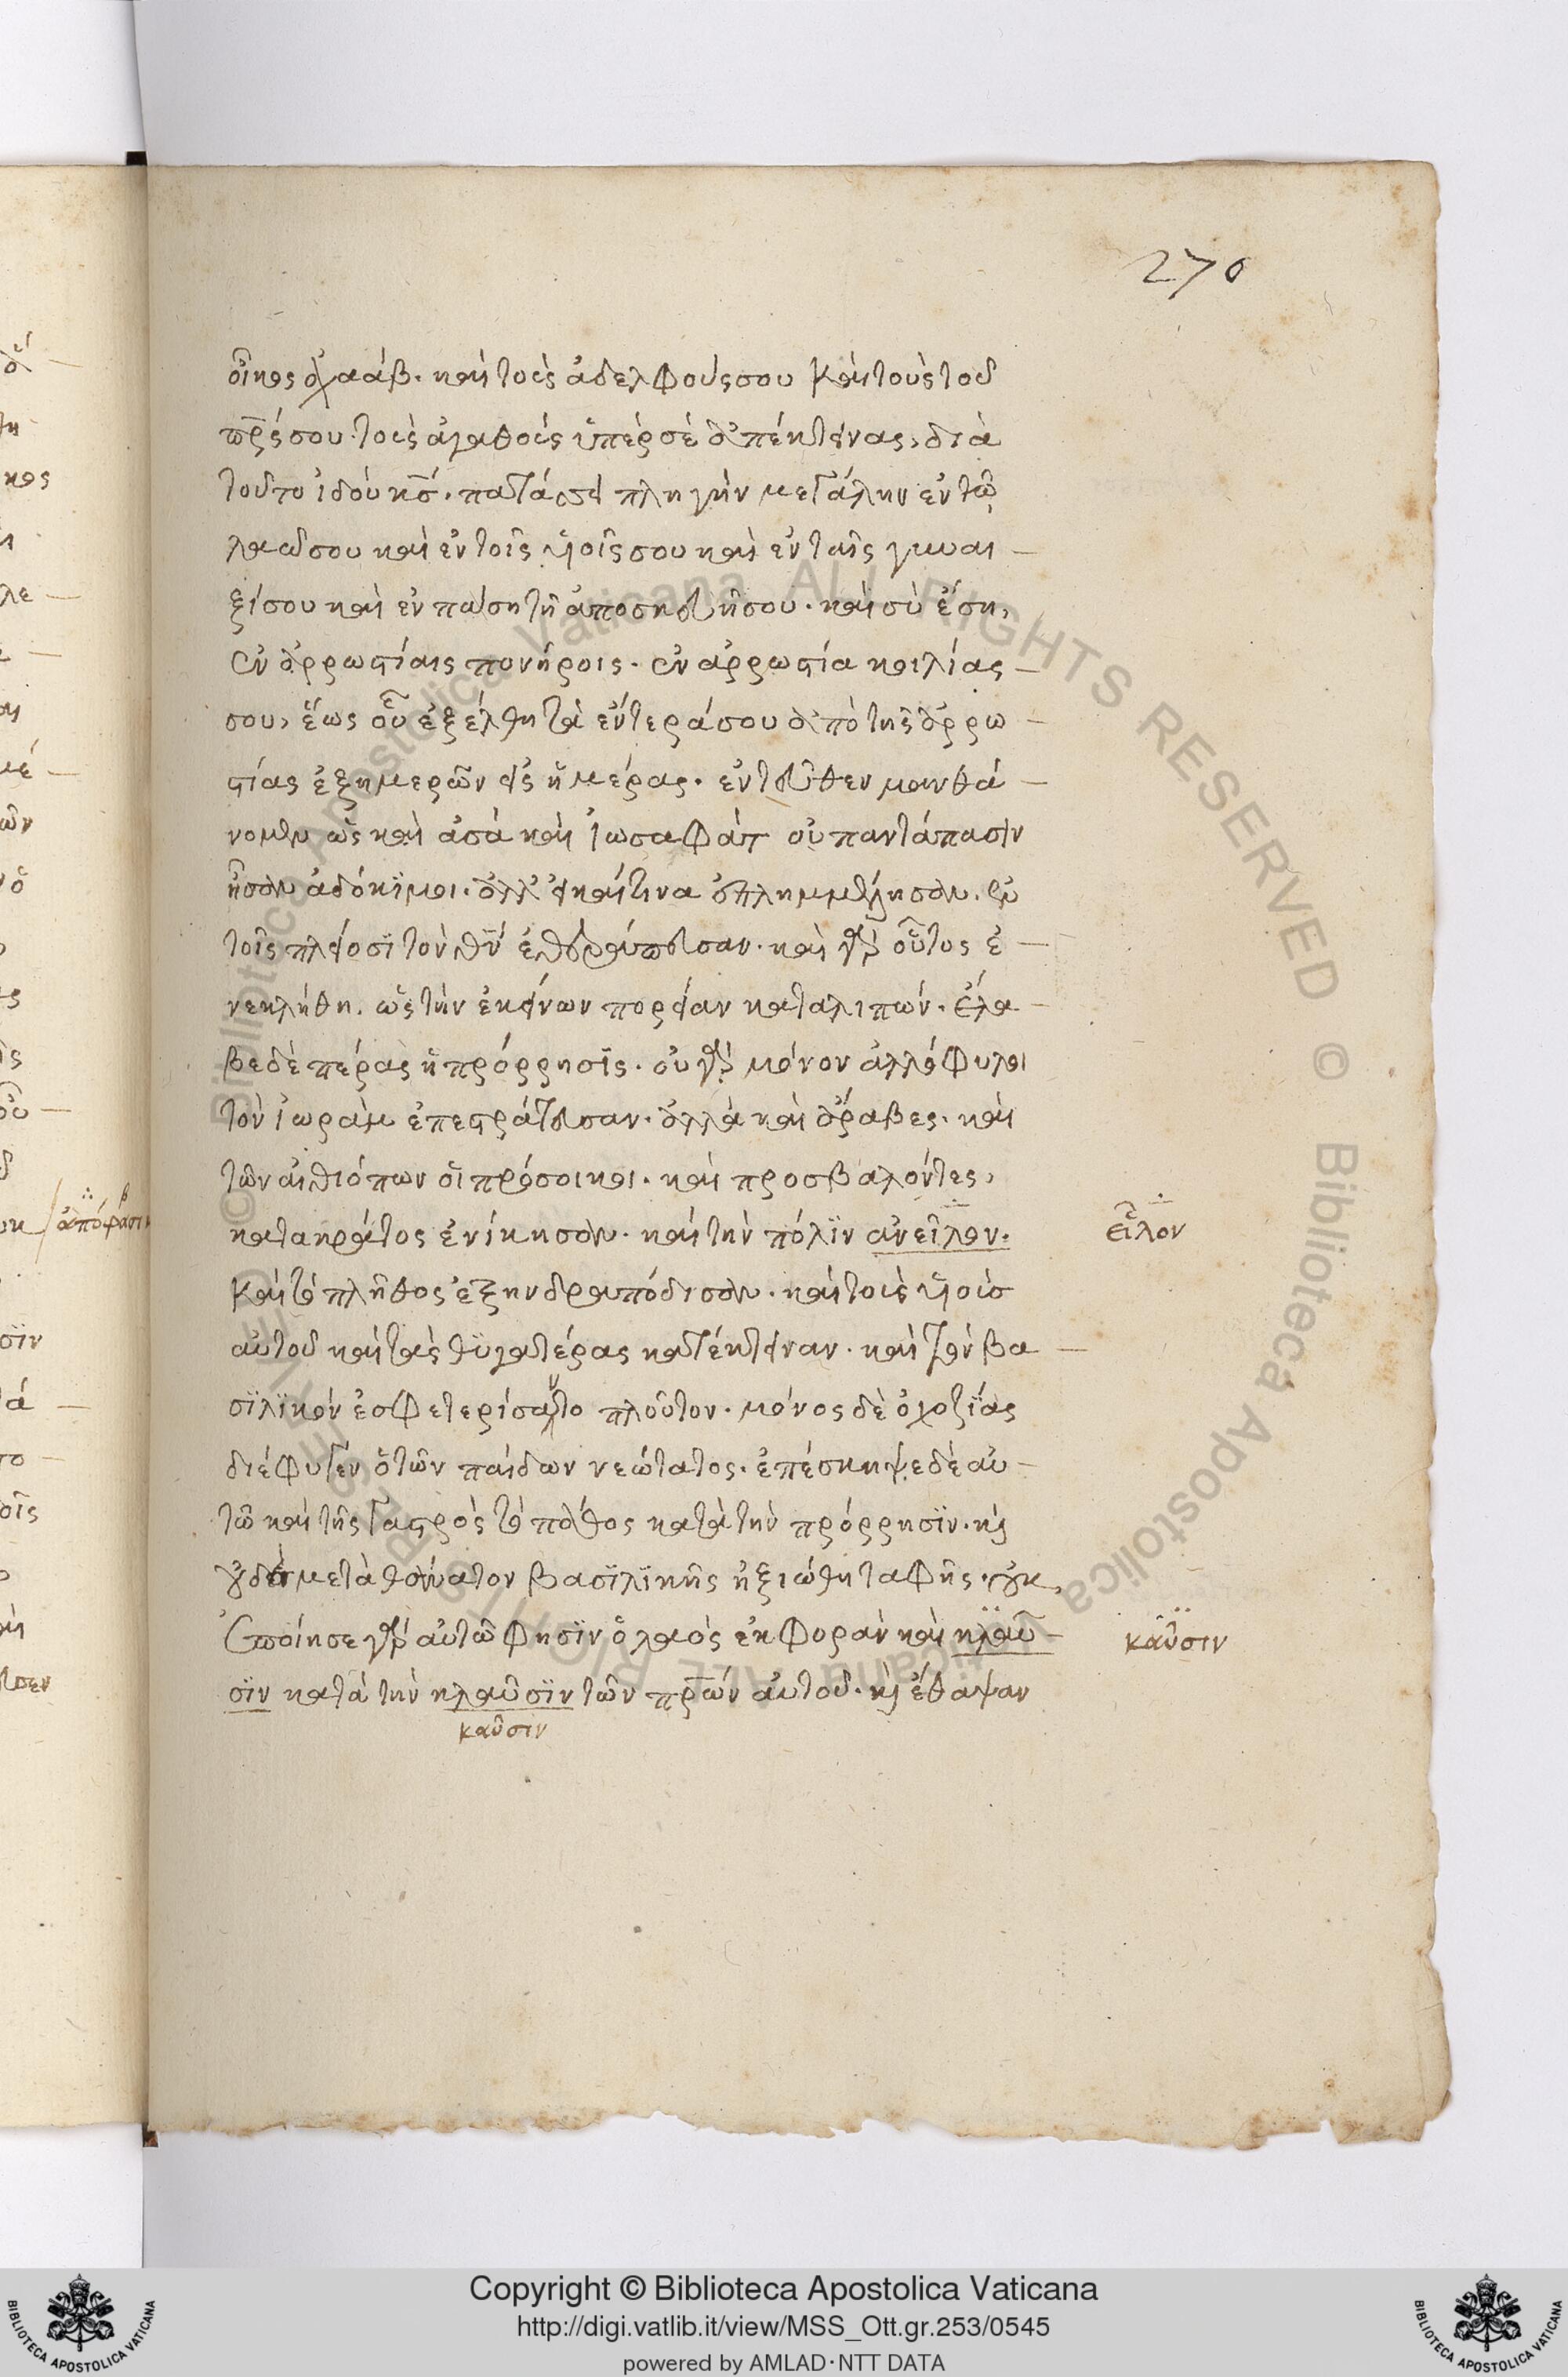 270
οἶκος ἀχαάβ. καὶ τοὺς ἀδελφούς σου καὶ τοὺς τοῦ
πρς σου. τοὺς ἀγαθοὺς ὑπὲρ σὲ ἀπέκτεινας, διὰ
τοῦτο ἰδοὺ κς. πατάσσει πληγὴν μεγάλην ἐν τῷ
λαῷ σου καὶ ἐν τοῖς υἱοῖς σου καὶ ἐν ταῖς γυναι
ξί σου καὶ ἐν πάσῃ τῇ ἀποσκευῇ σου. καὶ σὺ ἔσῃ,
ἐν ἀρρωστίαις πονήροις. ἐν ἀρρωστία κοιλίας
σου, ἕως οὗ ἐξέλθη τὰ ἔντερά σου ἀπὸ τῆς ἀρρω
στίας ἐξ ημερῶν εἰς ἡμέρας. ἐντεῦθεν μανθά
νομεν ὡς καὶ ἀσὰ καὶ ἰωσαφὰτ οὐ παντάπασιν
ἦσαν ἀδόκιμοι. ἀλλ' εἰ καί τινα ἐπλημμέλησαν. ἐν
τοῖς πλείοσι τὸν θν ἐθεράπευσαν. καὶ γὰρ οὗτος ἐ
νεκλήθη. ὡς τὴν ἐκείνων πορείαν καταλιπών. ἔλα
βε δὲ πέρας ἡ πρόρρησις. οὐ γὰρ μόνον ἀλλόφυλοι
τὸν ἰωρὰμ ἐπεστράτευσαν. ἀλλὰ καὶ ἄραβες. καὶ
τῶν αἰθιόπων οἱ πρόσοικοι. καὶ προσβαλόντες,
κατακράτος ἐνίκησαν. καὶ τὴν πόλιν ἀνεῖλον.
εἷλον
καὶ τὸ πλῆθος ἐξηνδραπόδισαν. καὶ τοὺς υἱοὺς
αὐτοῦ καὶ τὰς θυγατέρας κατέκτειναν. καὶ τὸν βα
σιλικὸν ἐσφετερίσαντο πλοῦτον. μόνος δὲ ὀχοζίας
διέφυγεν ὁ τῶν παίδων νεώτατος. ἐπέσκηψε δὲ αὐ
τῶ καὶ τῆς γαστρὸς τὸ πάθος κατὰ τὴν πρόρρησιν. καὶ
οὐδὲ μετὰ θάνατον βασιλικῆς ἠξιώθη ταφῆς. οὐκ
ἐποίησε γὰρ αὐτῶ φησὶν ὁ λαὸς ἐκφορὰν καὶ κλαῦ
καῦσιν
σιν κατὰ τὴν κλαῦσιν τῶν πρων αὐτοῦ. καὶ ἔθαψαν
καῦσιν
ἀπόφασιν
Copyright © Biblioteca Apostolica Vaticana
http://digi.vatlib.it/view/MSS_Ott.gr.253/0545
powered by AMLAD·NTT DATA